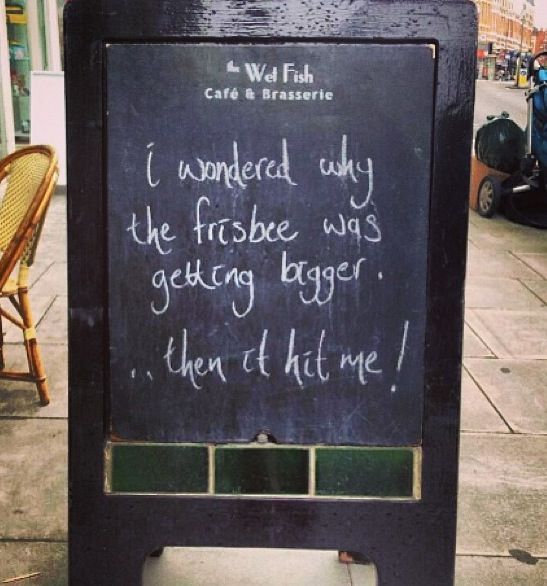 the Wet Fish
Café & Brasserie
i wondered why
the frisbee was
getting bigger.
.. then it hit me!